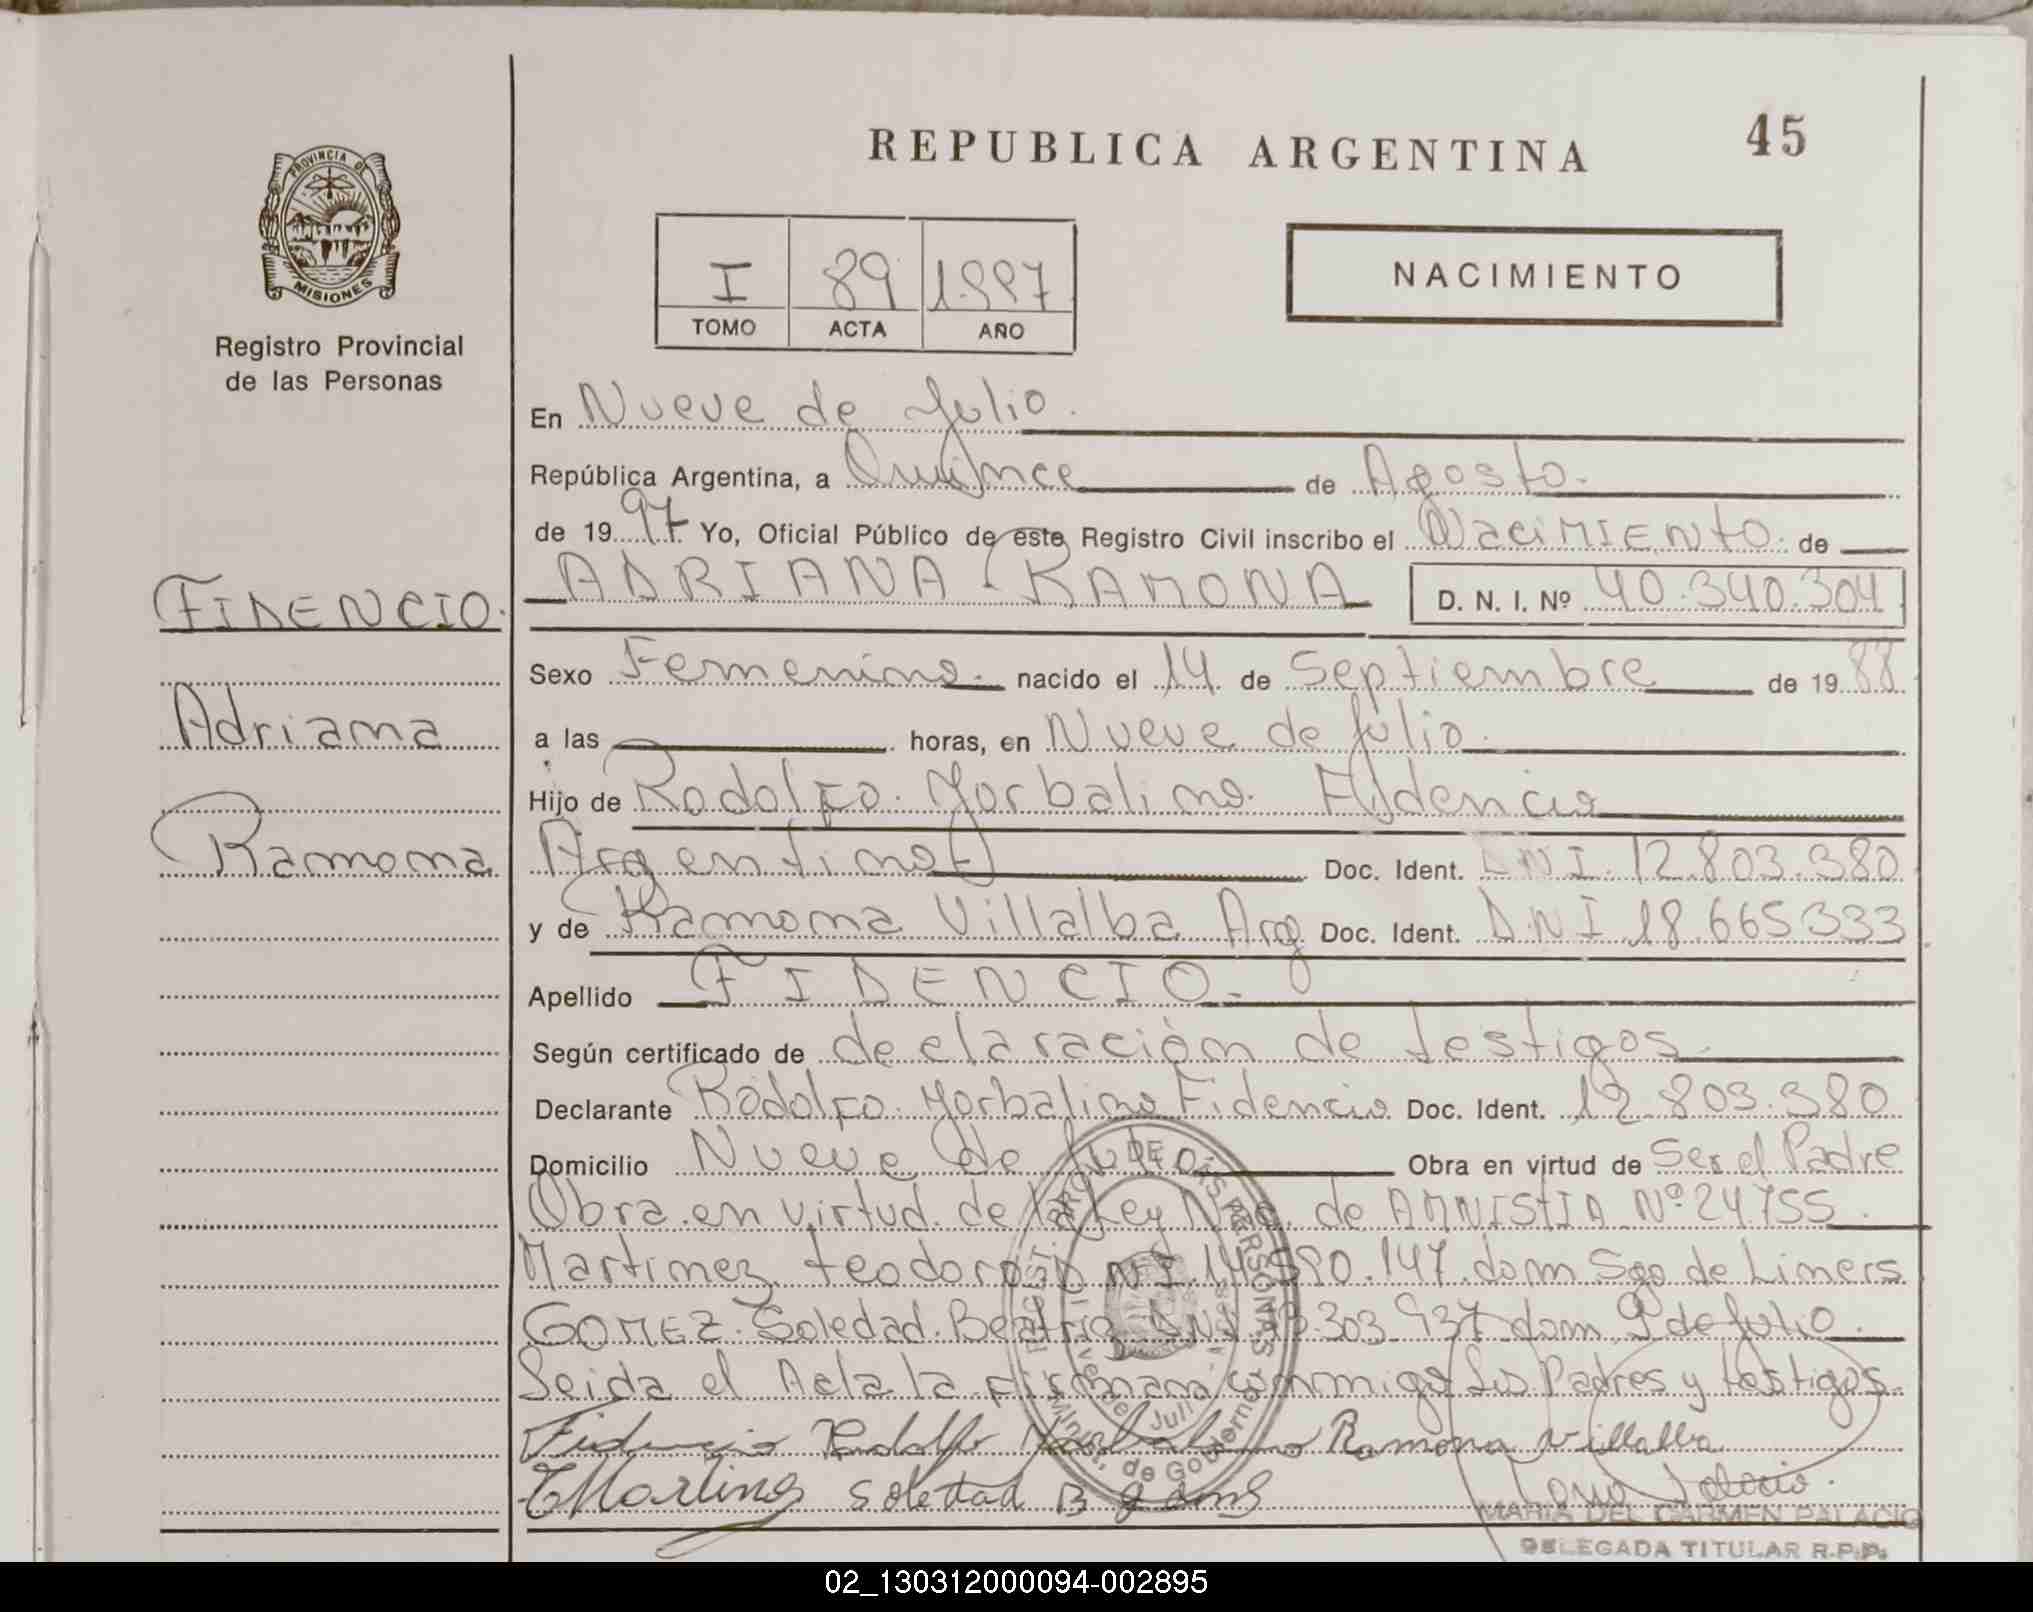 REPUBLICA ARGENTINA
45
PROVINCIA DE
MISIONES
Registro Provincial
de las Personas
I 89 1997
TOMO ACTA AÑO
NACIMIENTO
En Nueve de Julio.
República Argentina, a Quince de Agosto.
de 1997. Yo, Oficial Público de este Registro Civil inscribo el Nacimiento de
FIDENCIO.
ADRIANA RAMONA D. N. I. Nº 40.340.304
Sexo Femenino. nacido el 14 de Septiembre de 1988
Adriana
a las horas, en Nueve de Julio.
Hijo de Rodolfo Fidencio
Ramona
Argentino Doc. Ident. DNI. 12.803.380
y de Ramona Villalba Arg Doc. Ident. DNI 18.665333
Apellido FIDENCIO.
Según certificado de declaración de testigos
Declarante Rodolfo Fidencio Doc. Ident. 12.803.380
Domicilio Nueve de Obra en virtud de Ser el Padre
Obra en virtud de la Ley de AMNISTIA Nº 24755.
Martinez teodoro 147. dom Sgo de Liners
GOMEZ. Soledad. Beatriz 303 937 dom 9 de Julio.
Leida el Acta la firman conmigo los Padres y testigos.
Fidencio Rodolfo Ramona Villalba
Soledad B
MARIA DEL CARMEN PALACIO
DELEGADA TITULAR R.P.P.
02_130312000094-002895